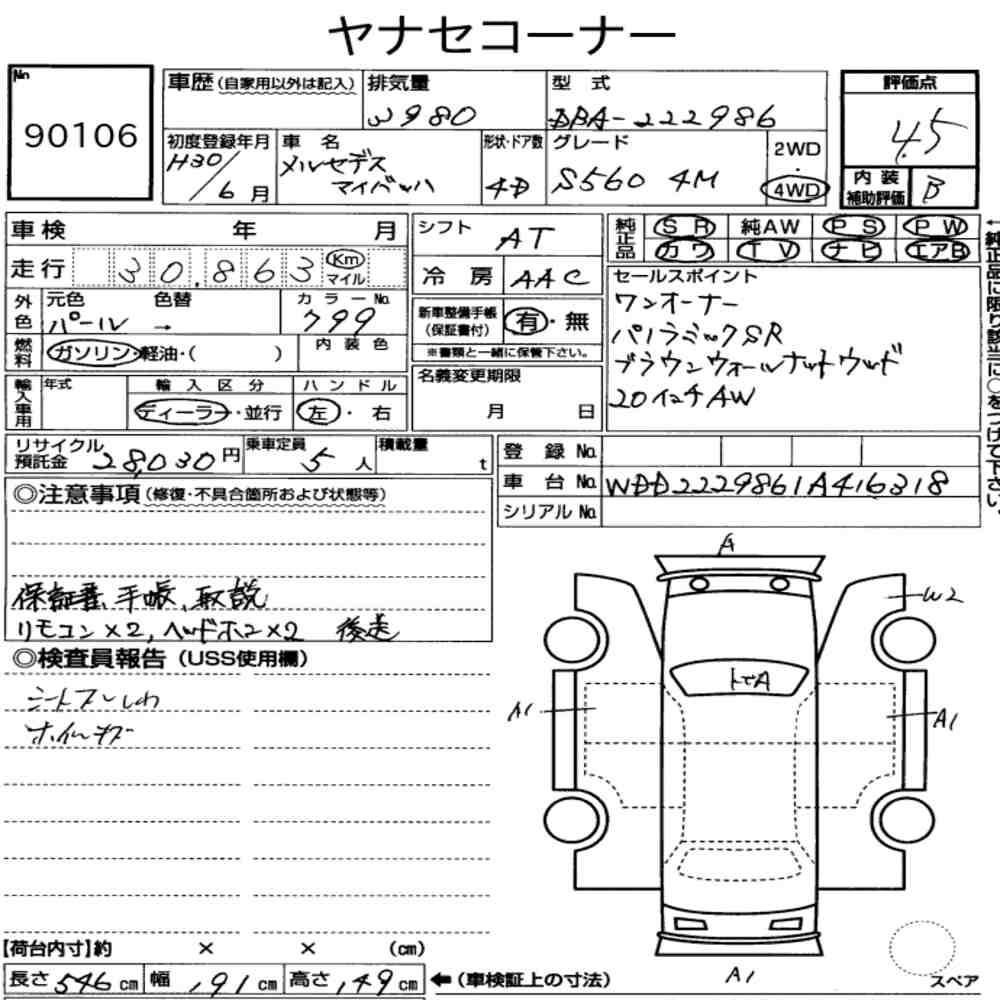 ヤナセコーナー
No.
90106
車歴(自家用以外は記入)
排気量
3980
型式
DBA-222986
評価点
4.5
初度登録年月
H30/6月
車名
メルセデス
マイバッハ
形状・ドア数
4D
グレード
S560 4M
2WD
4WD
内装
補助評価
B
車検 年 月
走行 30,863 Km マイル
シフト
AT
冷房 AAC
純正品
SR 純AW PS PW
カワ TV ナビ エアB
←純正品に限り該当に○をつけて下さい。
外色
元色 色替
パール →
カラーNo.
799
燃料
ガソリン・軽油・( )
内装色
新車整備手帳
(保証書付)
有・無
※書類と一緒に保管下さい。
セールスポイント
ワンオーナー
パノラミックSR
ブラウンウォールナットウッド
20インチAW
輸入車用
年式
輸入区分
ディーラー・並行
ハンドル
左・右
名義変更期限
月 日
リサイクル
預託金 28,030円
乗車定員
5人
積載量
t
登録No.
車台No. WDD2229861A416318
シリアルNo.
◎注意事項(修復・不具合箇所および状態等)
保証書、手帳、取説
リモコン×2, ヘッドホン×2 後送
◎検査員報告(USS使用欄)
シートスレしわ
ホイールキズ
A
W2
トビA
A1
A1
A1
スペア
【荷台内寸】約 × × (cm)
長さ546cm 幅191cm 高さ149cm ←(車検証上の寸法)